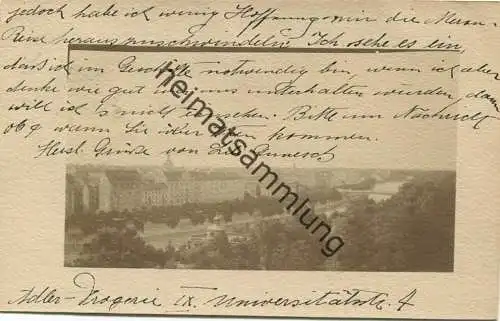 jedoch habe ich wenig Hoffnung mir die Meran-
Reise herauszuschwindeln. Ich sehe es ein,
dass ich im Geschäfte notwendig bin, wenn ich aber
denke wie gut wir uns unterhalten würden, dann
will ich's nicht einsehen. Bitte um Nachricht
ob & wann Sie hier kommen.
Herzl. Grüsse von
heimatsammlung.de
Adler-Drogerie IX. Universitätsstr. 4